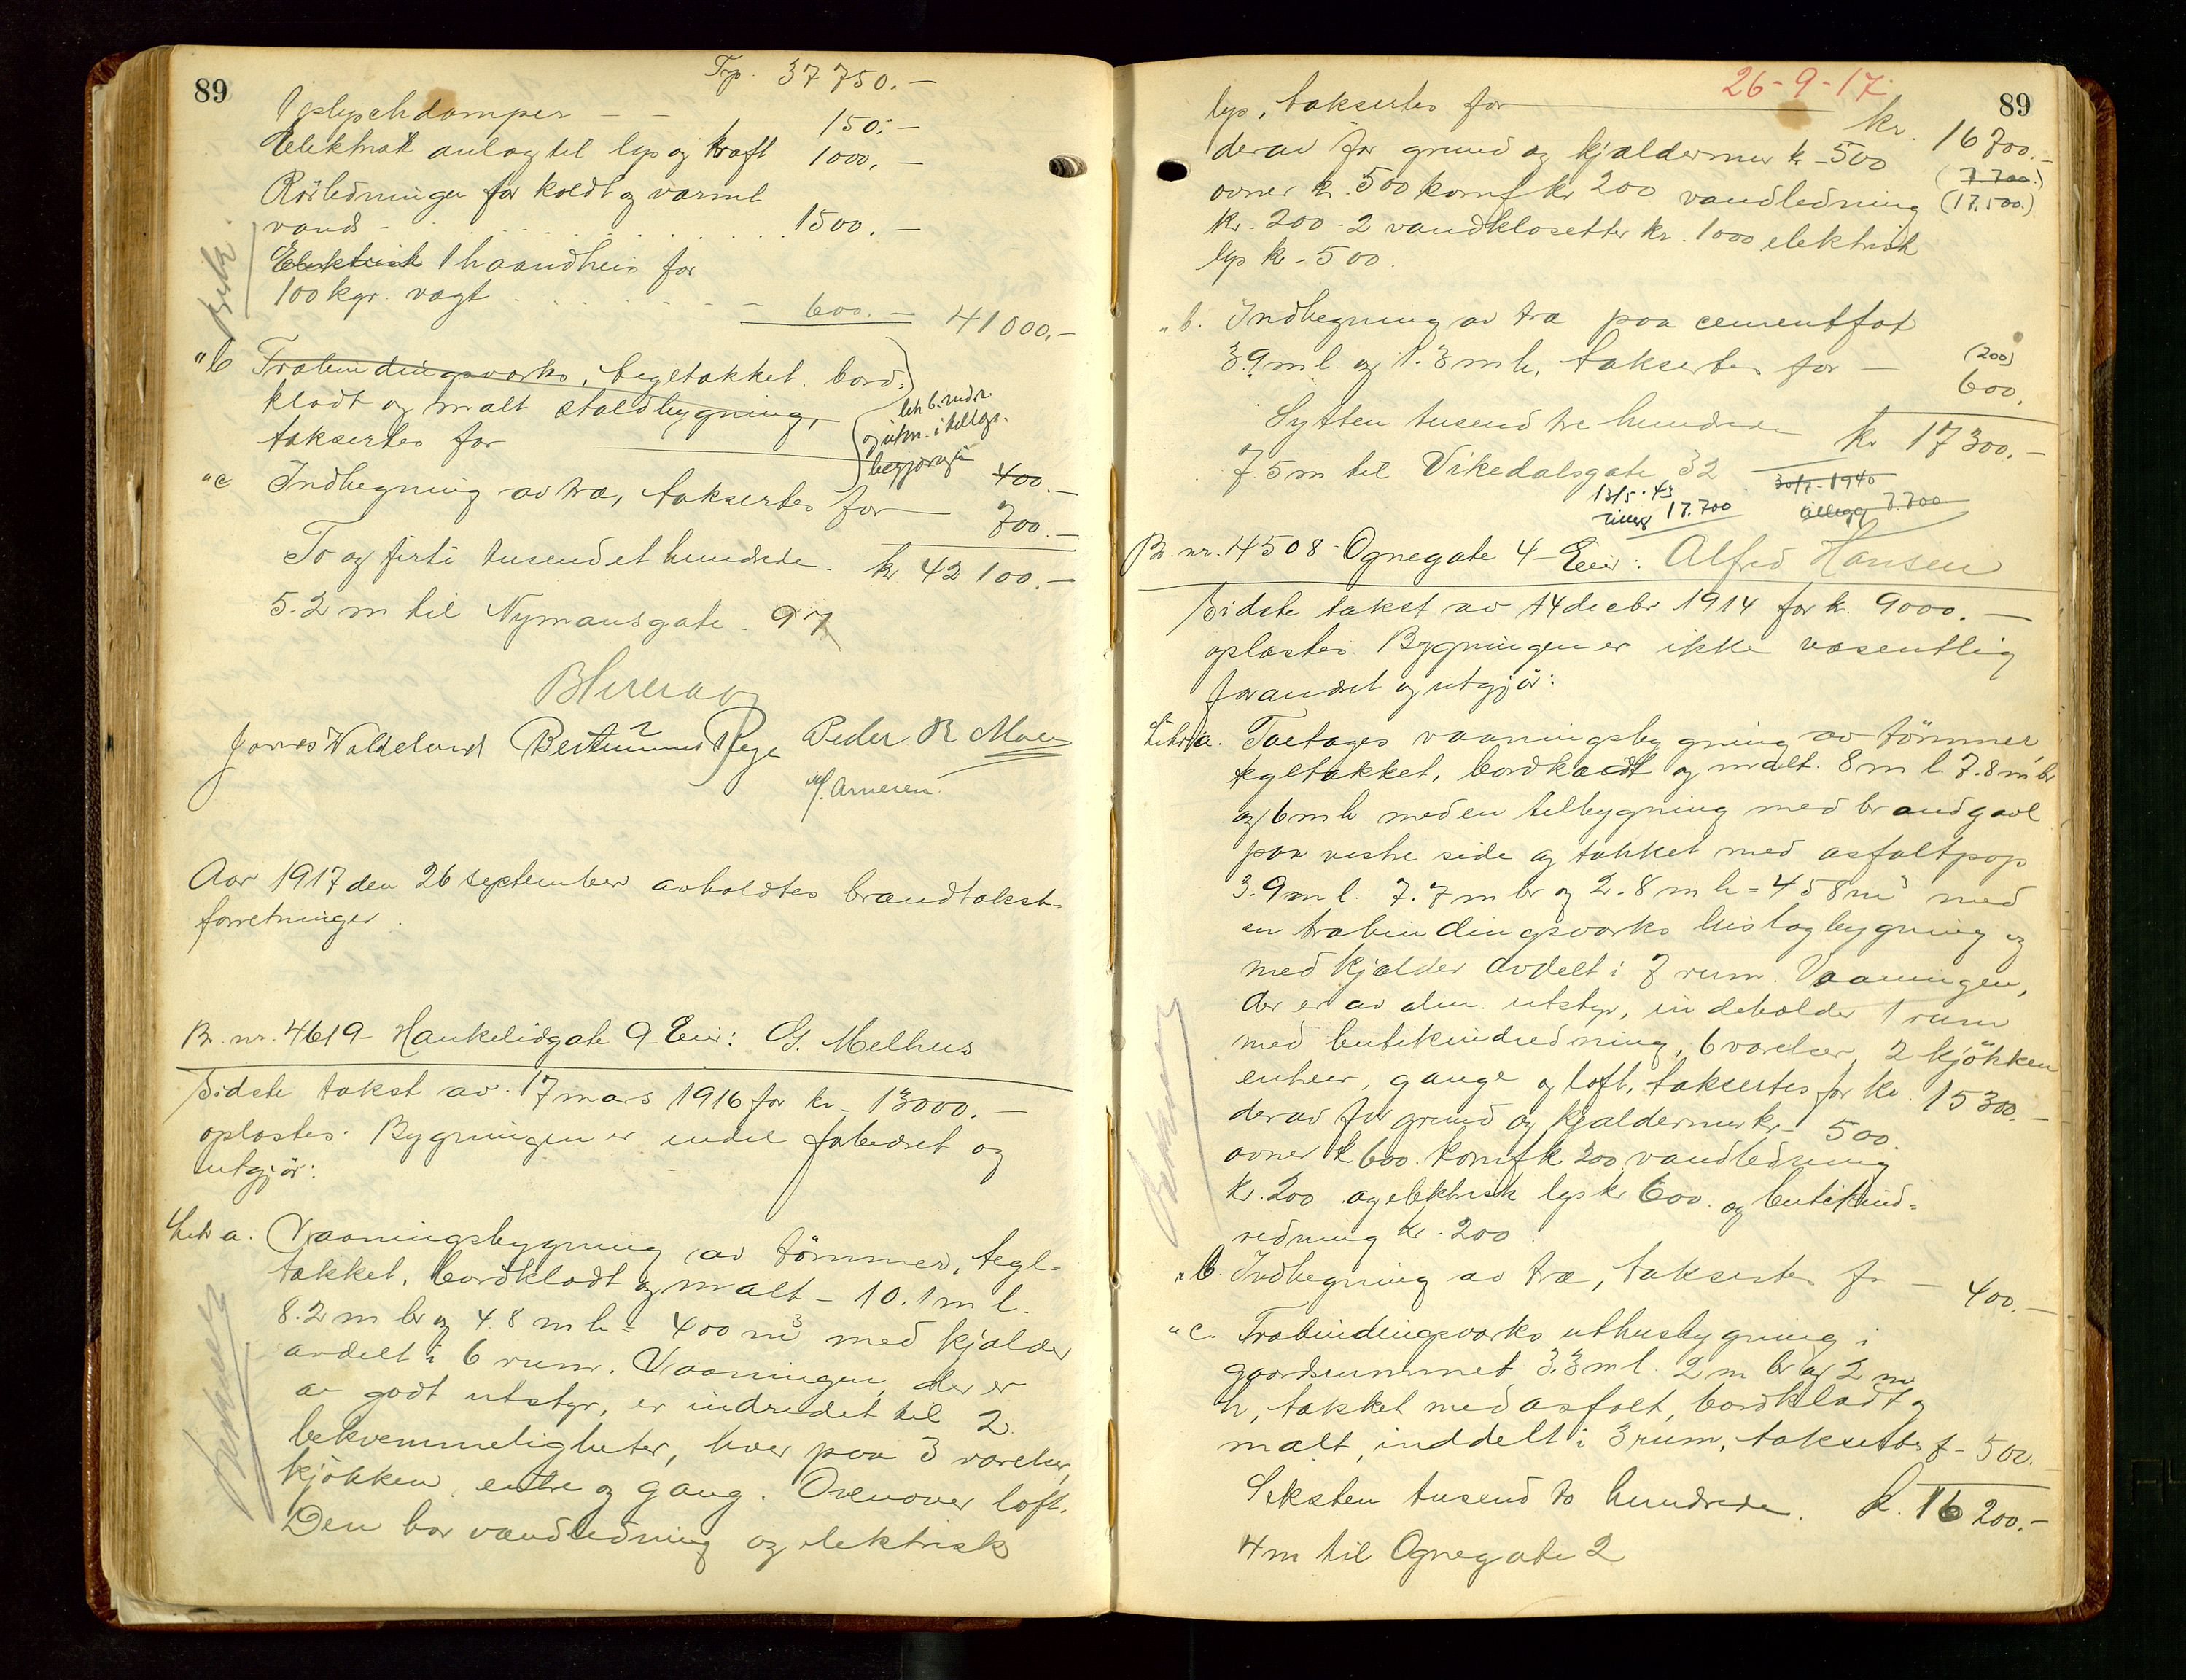 89
Trp. 37 750.-
damper - - 150.-
Elektrisk anlæg til lys og kraft 1000.-
Rörledninger for koldt og varmt
vand - . . . . . . . . 1500.-
Elektrisk 1 haandheis for
100 kgr. vægt . . . . . - 600.- 41 000.-
"b Træbindingsverks, tegltækket, bord-
klædt og malt staldbygning,
taksertes for 400.-
"c Indhegning av træ, taksertes for 700.-
To og firti tusend et hundrede. kr 42 100.-
5.2 m til Nymansgate. 97
Peder R Moen
Aar 1917 den 26 september avholdtes brandtakst-
forretninger.
Br. nr. 4619 - Haukelidgate 9 Eier: G. Melhus
Sidste takst av 17 mars 1916 for kr. 13000.-
oplæstes. Bygningen er endel forbedret og
utgjör:
Litr a. Vaaningsbygning av tömmer, tegl-
tækket, bordklædt og malt - 10.1 m l.
8.2 m br og 4.8 m h = 400 m³ med kjælder
avdelt i 6 rum. Vaaningen, der er
av godt utstyr, er indredet til 2
bekvemmeligheter, hver paa 3 værelser,
kjökken, entre og gang. Ovenover loft.
Den har vandledning og elektrisk
26-9-17
89
lys, taksertes for kr. 16 700.-
derav for grund og kjældermur kr - 500 (7.700.)
ovner kr. 500 komf kr 200 vandledning (17.500.)
kr. 200 - 2 vandklosetter kr. 1000 elektrisk
lys kr - 500.
"b. Indhegning av træ paa cementfot
39 m l. og 1.3 m h, taksertes for - (200) 600.
Sytten tusend tre hundrede kr 17 300.-
7.5 m til Vikedalsgate 32
30/7-1940
13/5-43
tillegg 17.700
tillegg 7.700
Br. nr. 4508 - Ognegate 4 - Eier: Alfred Hansen
Sidste takst av 14 decbr 1914 for kr. 9000.-
oplæstes. Bygningen er ikke væsentlig
forandret og utgjör:
Litr a. Toetages vaaningsbygning av tömmer
tegltækket, bordklædt og malt. 8 m l. 7.8 m br
og 6 m h med en tilbygning med brandgavl
paa vestre side og tækket med asfaltpap
3.9 m l. 7.7 m br og 2.8 m h = 458 m³ med
en træbindingsverks bislagbygning og
med kjælder avdelt i 7 rum. Vaaningen,
der er av alm. utstyr, indeholder 1 rum
med butikindredning, 6 værelser, 2 kjökken
entreer, gange og loft, taksertes for kr. 15 300.-
derav for grund og kjældermur kr - 500.
ovner kr 600. komf kr 200 vandledning
kr. 200 og elektrisk lys kr 600. og butikind-
redning kr. 200.
"b. Indhegning av træ, taksertes fr - 400.-
"c. Træbindingsverks uthusbygning i
gaardsrummet 3.3 m l. 2 m br og 2 m
h, tækket med asfalt, bordklædt og
malt, inddelt i 3 rum, taksertes f - 500.
Seksten tusend to hundrede. kr. 16 200.-
4 m til Ognegate 2